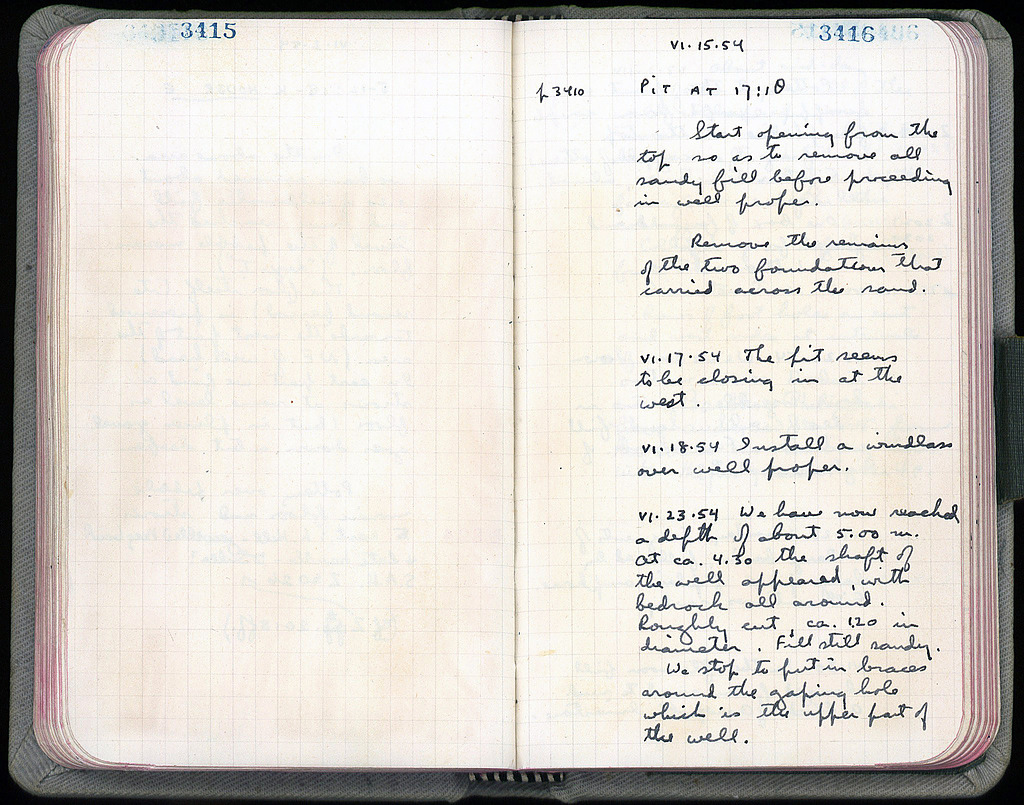 3415
3416
VI.15.54
p 3410
PiT AT 17:1Θ
Start opening from the
top so as to remove all
sandy fill before proceeding
in well proper.
Remove the remains
of the two foundations that
carried across the sand.
VI.17.54 The pit seems
to be closing in at the
west.
VI.18.54 Install a windlass
over well proper.
VI.23.54 We have now reached
a depth of about 5.00 m.
At ca. 4.50 the shaft of
the well appeared, with
bedrock all around.
Roughly cut, ca. 1.20 in
diameter. Fill still sandy.
We stop to put in braces
around the gaping hole
which is the upper part of
the well.